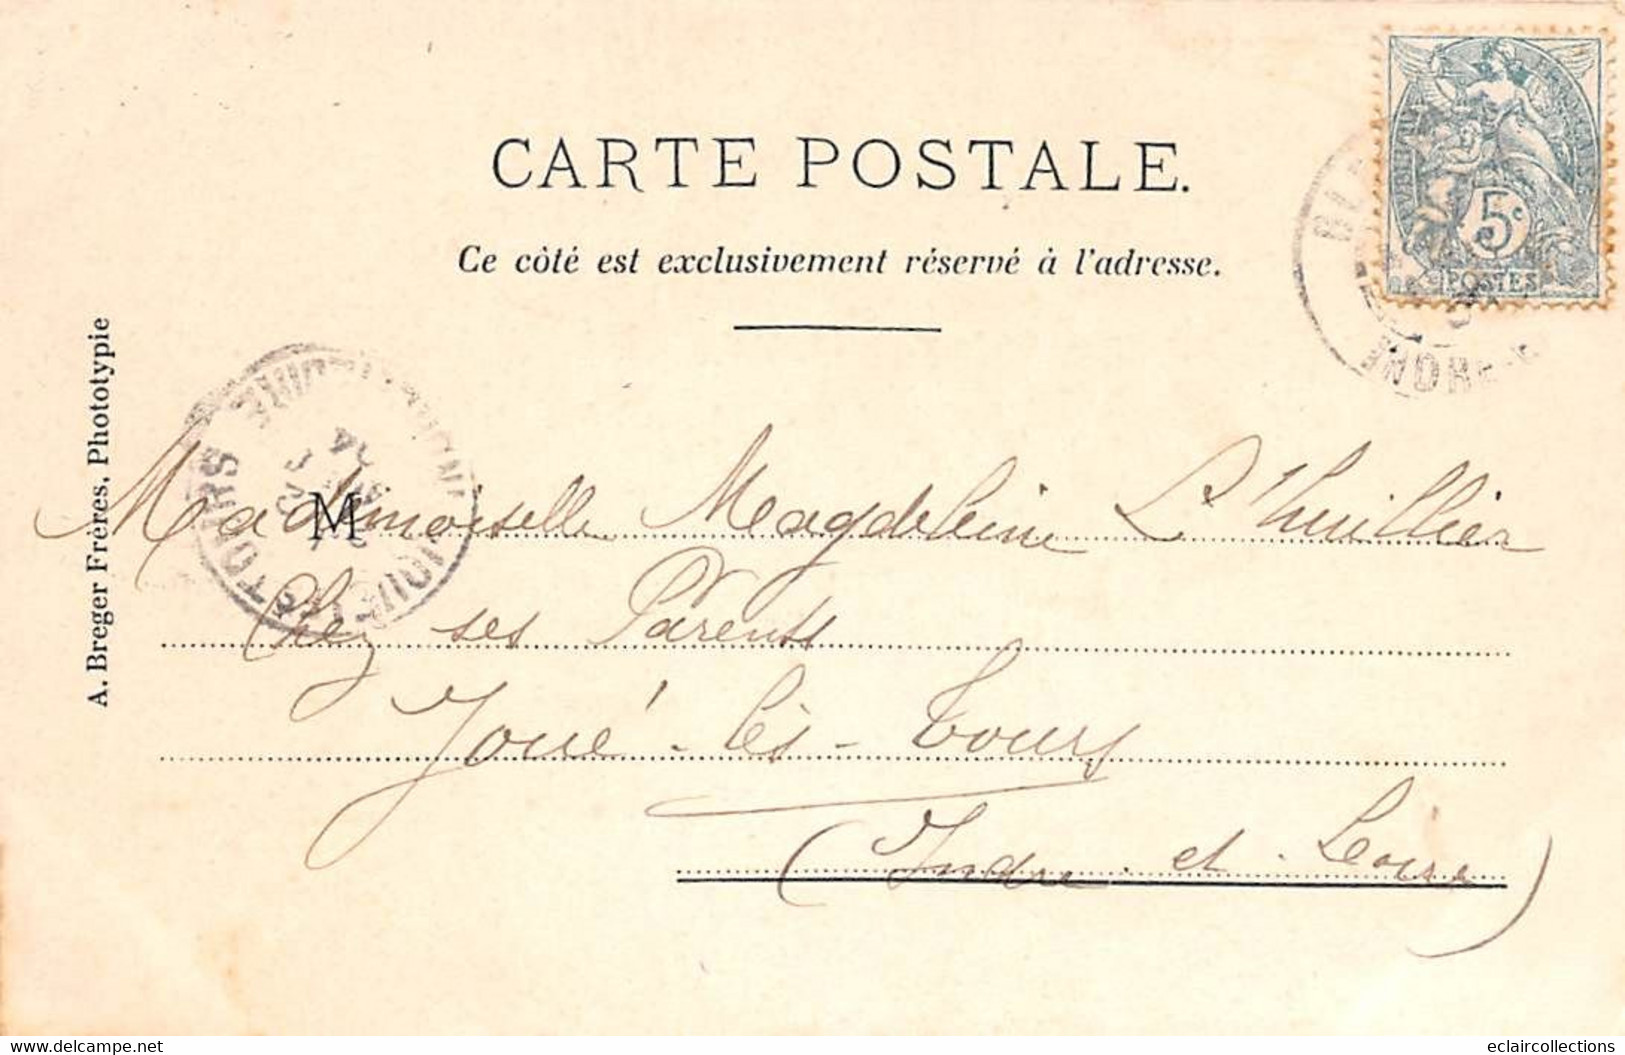 CARTE POSTALE.
Ce côté est exclusivement réservé à l'adresse.
5c
POSTES
INDRE-
TOURS
04
A. Breger Frères, Phototypie
M
Mademoiselle Magdeleine L'huillier
Chez ses Parents
Joué-lès-Tours
(Indre-et-Loire)
www.delcampe.net
eclaircollections